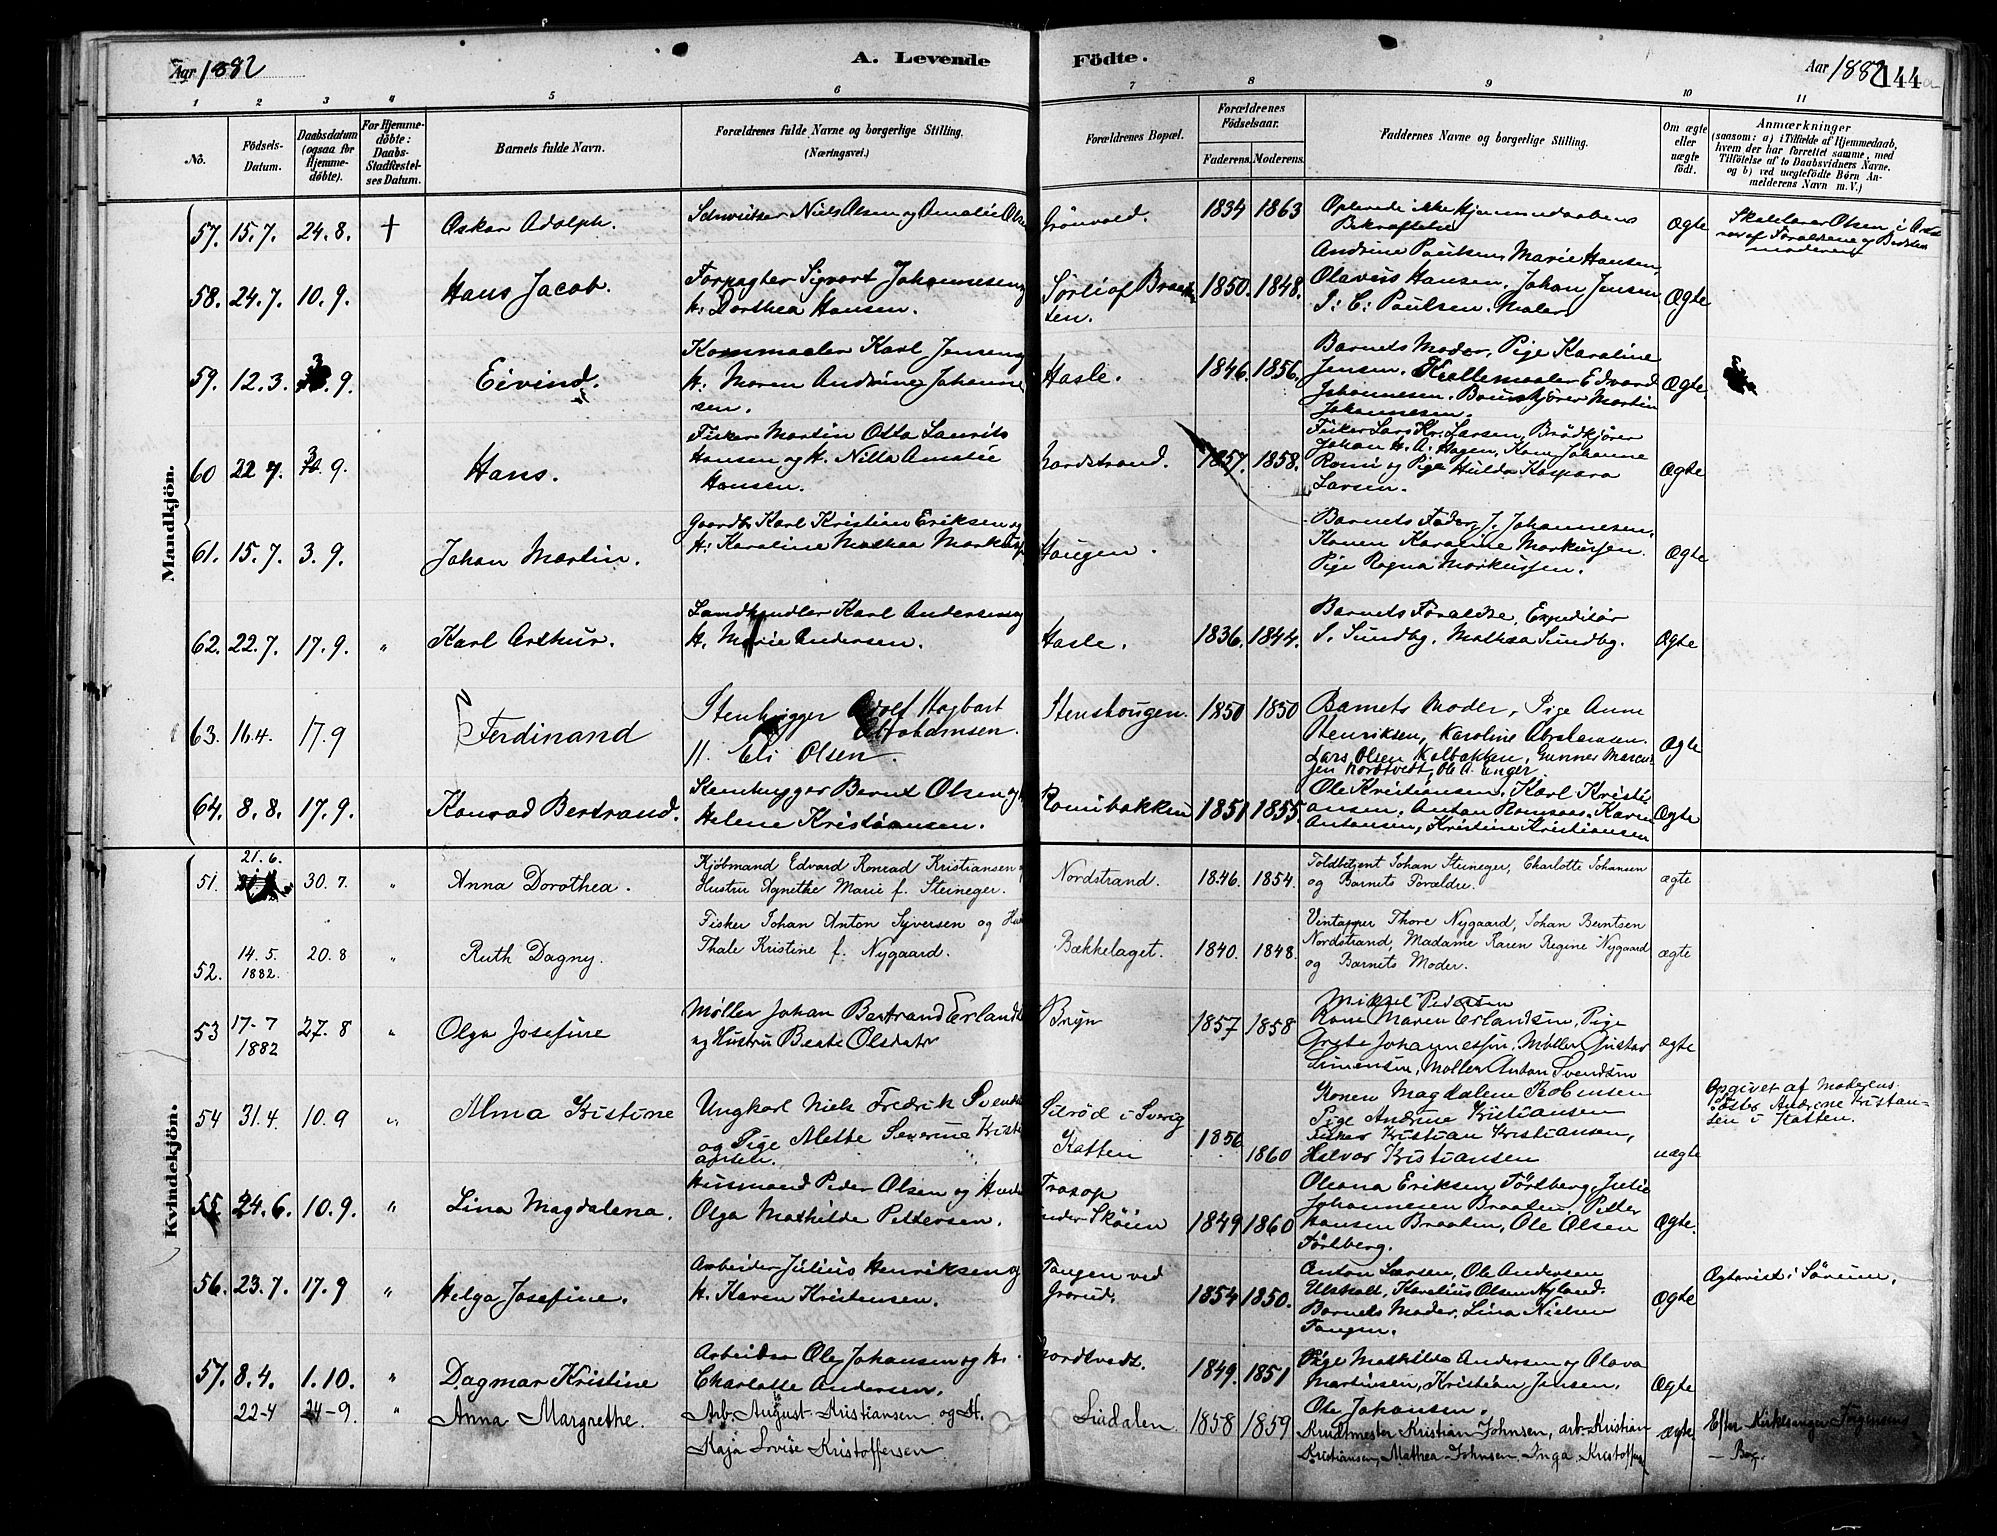 Aar 1882
A. Levende Födte.
Aar 1882 144
1 2 3 4 5 6 7 8 9 10 11
No.
Födsels-Datum.
Daabsdatum (ogsaa for Hjemmedöbte).
For Hjemmedöbte: Daabs-Stadfæstelses Datum.
Barnets fulde Navn.
Forældrenes fulde Navne og borgerlige Stilling. (Næringsvei.)
Forældrenes Bopæl.
Forældrenes Födselsaar.
Faderens. Moderens.
Faddernes Navne og borgerlige Stilling.
Om ægte eller uægte födt.
Anmærkninger
(saasom: a) i Tilfælde af Hjemmedaab,
hvem der har forrettet samme, med
Tilföielse af to Daabsvidners Navne.
og b) ved uægtefödte Börn Anmelderens Navn m. V.)
Mandkjön.
57. 15.7. 24.8. + Oskar Adolph. Niels Olsen og Amalie Grönvold. 1834 1863 Oplevede ikke Hjemmedaabens Bekræftelse Ægte Skolelærer Olsen i
af Forældrene og Bedstemoderen
58. 24.7. 10.9. Hans Jacob. Forpagter Sigvart Johannesen og
H: Dorthea Hansen. Sörli af Braaten. 1850. 1848. Andrine Paulsen, Marie Hansen,
Olavus Hansen, Johan Jensen
S. C. Paulsen. Maler Ægte
59. 12.3. 3.9. Eivind. Kornmaaler Karl Jensen og
H. Maren Andrine Johannesen. Hasle. 1846. 1856. Barnets Moder, Pige Karoline
Jensen, Kullemaaler Edvard
Johannesen. Martin
Johannesen. Ægte
60 22 7. 3.9. Hans. Fisker Martin Otto Laurits
Hansen og H. Nilla Amalie
Hansen. Nordstrand. 1857. 1858. Fisker Lars Kr. Larsen, Brödkjörer
Johan H. A. Hagen, Kone Johanne
Romi og Pige Hulda Kaspara
Larsen. Ægte
61. 15.7. 3.9. Johan Martin. Gaardb. Karl Kristian Eriksen og
H: Karoline Mathea Haugen. Barnets Fader, J. Johannesen,
Konen Karoline Markussen.
Pige Ragna Markussen. Ægte
62. 22.7. 17.9. " Karl Arthur. Landhandler Karl Andersen og
H. Marie Andersen. Hasle. 1836. 1844. Barnets Forældre, Expeditör
S. Sundby, Mathea Sundby. Ægte
63. 16.4. 17.9 Ferdinand Stenhugger Adolf Hagbart
H. Eli Olsen Stenshougen. 1850 1850 Barnets Moder, Pige Anne
Henriksen, Karoline Abrahamsen.
Lars Olsen Kalbakken, Gunner Marcussen
Nordtvedt, Ole A. Unger Ægte
64. 8.8. 17.9. Konrad Bertrand. Stenhugger Bernt Olsen og
Helene Kristiansen. Romibakken 1851 1855. Ole Kristiansen, Karl Kristiansen,
Anton Romsaas, Karen
Antonsen, Kristine Kristiansen Ægte
Kvindekjön.
51. 21.6. 30.7. " Anna Dorothea. Kjöbmand Edvard Konrad Kristiansen
Hustru Agnethe Marie f. Steineger. Nordstrand. 1846. 1854. Toldbetjent Johan Steineger, Charlotte Johansen
og Barnets Forældre. ægte
52. 14.5. 1882. 20.8 " Ruth Dagny. Fisker Johan Anton Syversen og
Thale Kristine f. Nygaard. Bækkelaget. 1840. 1848. Vintapper Thore Nygaard, Johan Berntsen
Nordstrand, Madame Karen Regine Nygaard
og Barnets Moder. ægte
53 17-7 1882 27.8 " Olga Josefine Møller Johan Bertrand
og Hustru Beate Olsdatr Bryn 1857 1858 Mikael Pedersen
Kone Maren Erlandsen, Pige
Grete Johannessen, Møller Gustav
Simensen, Møller Anton Svendsen ægte
54 31.4. 10.9 " Alma Kristine Ungkarl Niels Fredrik
og Pige Mette Severine Kristiansen. Silröd i Sverig
Katten 1856 1860 Konen Magdalene Robinsen
Pige Andrine Kristiansen
Fisker Kristian Kristiansen,
Halvor Kristiansen uægte Opgivet af Moderens
Söster Andrene Kristansen i Katten.
55. 24.6. 10.9. " Lina Magdalena. Husmand Peder Olsen og
Olga Mathilde Pettersen. Trosop
under Sköien 1849 1860 Oleana Eriksen Förlberg, Julie
Johannesen Braaten, Petter
Hansen Braaten, Ole Olsen
Förlberg. Ægte.
56. 23.7. 17.9 " Helga Josefine. Arbeider Julius Henriksen og
H. Karen Kristensen. Tangen ved
Grorud. 1854 1850. Anton Larsen, Ole Andersen
Ulsholt, Karelius Olsen Nyland.
Barnets Moder, Lina Nielsen
Tangen. Ægte Ægteviet i Sörum.
57. 8.4. 1.10. " Dagmar Kristine Arbeider Ole Johansen og H.
Charlotte Andersen. Nordtvedt. 1849. 1851 Pige Mathilde Andersen og Olava
Martinsen, Kristian Jensen,
Ole Johansen. Ægte
22-4 24-9. " Anna Margrethe. Arb. August Kristiansen og H.
Maja Lovise Kristoffersen Lindalen 1858 1859 Krudtmester Kristian Johnsen, arb. Kristian
Kristiansen, Mathea Johnsen, Inga Kristoffersen ægte Efter Kirkesanger Jörgensens
— Bog.